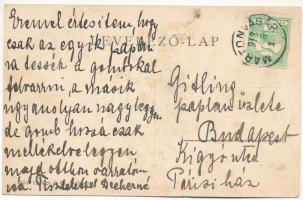 Ezennel értesítem, hogy
csak az egyik paplan
ra tessék a gombokat
felvarrni, a másik
ugyanolyan nagy legyen
de gomb hozzá csak
mellékelve legyen
majd otthon varratom
rá. Tisztelettel Decherné
LEVELEZŐ-LAP
MARTONVÁSÁR
Gitling
paplanüzlete
Budapest
Kigyó utca
Párisi ház